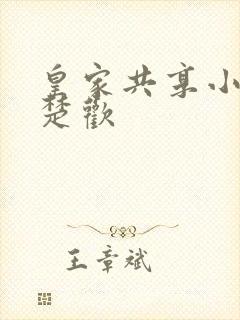 皇家共享小
楚歡
王章斌